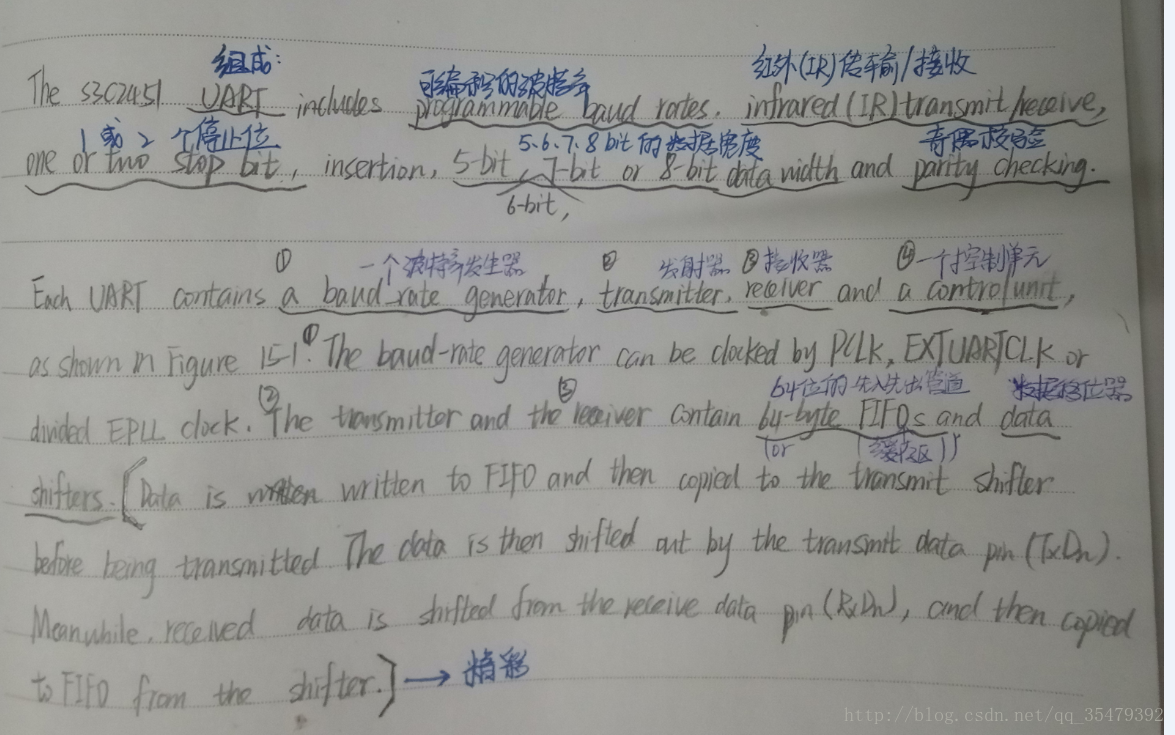 组成:
可编程的波特率
红外(IR)传输/接收
The S3C2451 UART includes programmable baud rates, infrared(IR)transmit/receive,
1或2个停止位
5.6.7.8 bit的数据宽度
奇偶校验
one or two stop bit, insertion, 5-bit, 7-bit or 8-bit data width and parity checking.
6-bit,
① 一个波特率发生器 ② 发射器 ③ 接收器 ④ 一个控制单元
Each UART contains a baud-rate generator, transmitter, receiver and a control unit,
as shown in Figure 15-1. ① The baud-rate generator can be clocked by PCLK, EXTUARTCLK or
② ③ 64位的先入先出管道 数据移位器
divided EPLL clock. The transmitter and the receiver contain 64-byte FIFOs and data
(or (缓冲区))
shifters. [Data is written written to FIFO and then copied to the transmit shifter
before being transmitted The data is then shifted out by the transmit data pin (TxDn).
Meanwhile, received data is shifted from the receive data pin (RxDn), and then copied
to FIFO from the shifter.] → 精彩
http://blog.csdn.net/qq_35479392